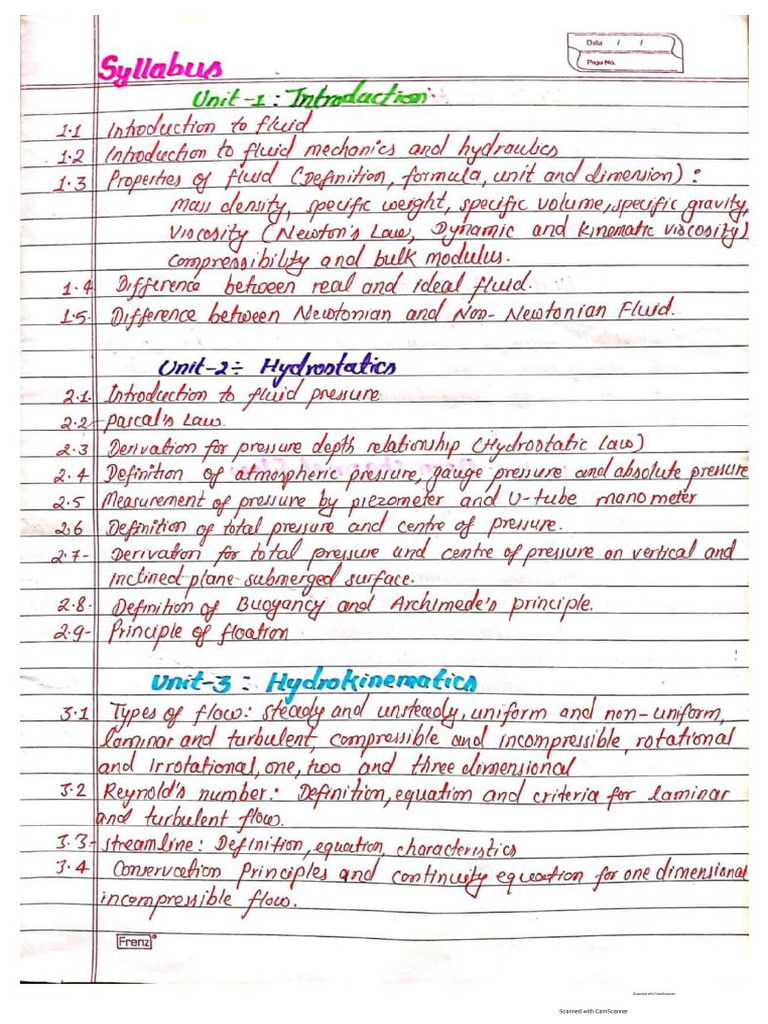 Data / /
Page No.
Syllabus
Unit-1: Introduction:
1.1 Introduction to fluid
1.2 Introduction to fluid mechanics and hydraulics
1.3 Properties of fluid (Definition, formula, unit and dimension):
mass density, specific weight, specific volume, specific gravity,
viscosity (Newton's Law, Dynamic and kinematic viscosity)
compressibility and bulk modulus.
1.4 Difference between real and ideal fluid.
1.5. Difference between Newtonian and Non-Newtonian Fluid.
Unit-2÷ Hydrostatics
2.1. Introduction to fluid pressure
2.2 Pascal's Law.
2.3 Derivation for pressure depth relationship (Hydrostatic law)
2.4 Definition of atmospheric pressure, gauge pressure and absolute pressure
2.5 Measurement of pressure by piezometer and U-tube manometer
2.6 Definition of total pressure and centre of pressure.
2.7- Derivation for total pressure and centre of pressure on vertical and
inclined plane submerged surface.
2.8. Definition of Buoyancy and Archimede's principle.
2.9- Principle of floation
Unit-3: Hydrokinematics
3.1 Types of flow: steady and unsteady, uniform and non-uniform,
laminar and turbulent, compressible and incompressible, rotational
and irrotational, one, two and three dimensional
3.2 Reynold's number: Definition, equation and criteria for laminar
and turbulent flow.
3.3- streamline: Definition, equation, characteristics
3.4 Conservation Principles and continuity equation for one dimensional
incompressible flow.
Frenz
Scanned with CamScanner
Scanned with CamScanner